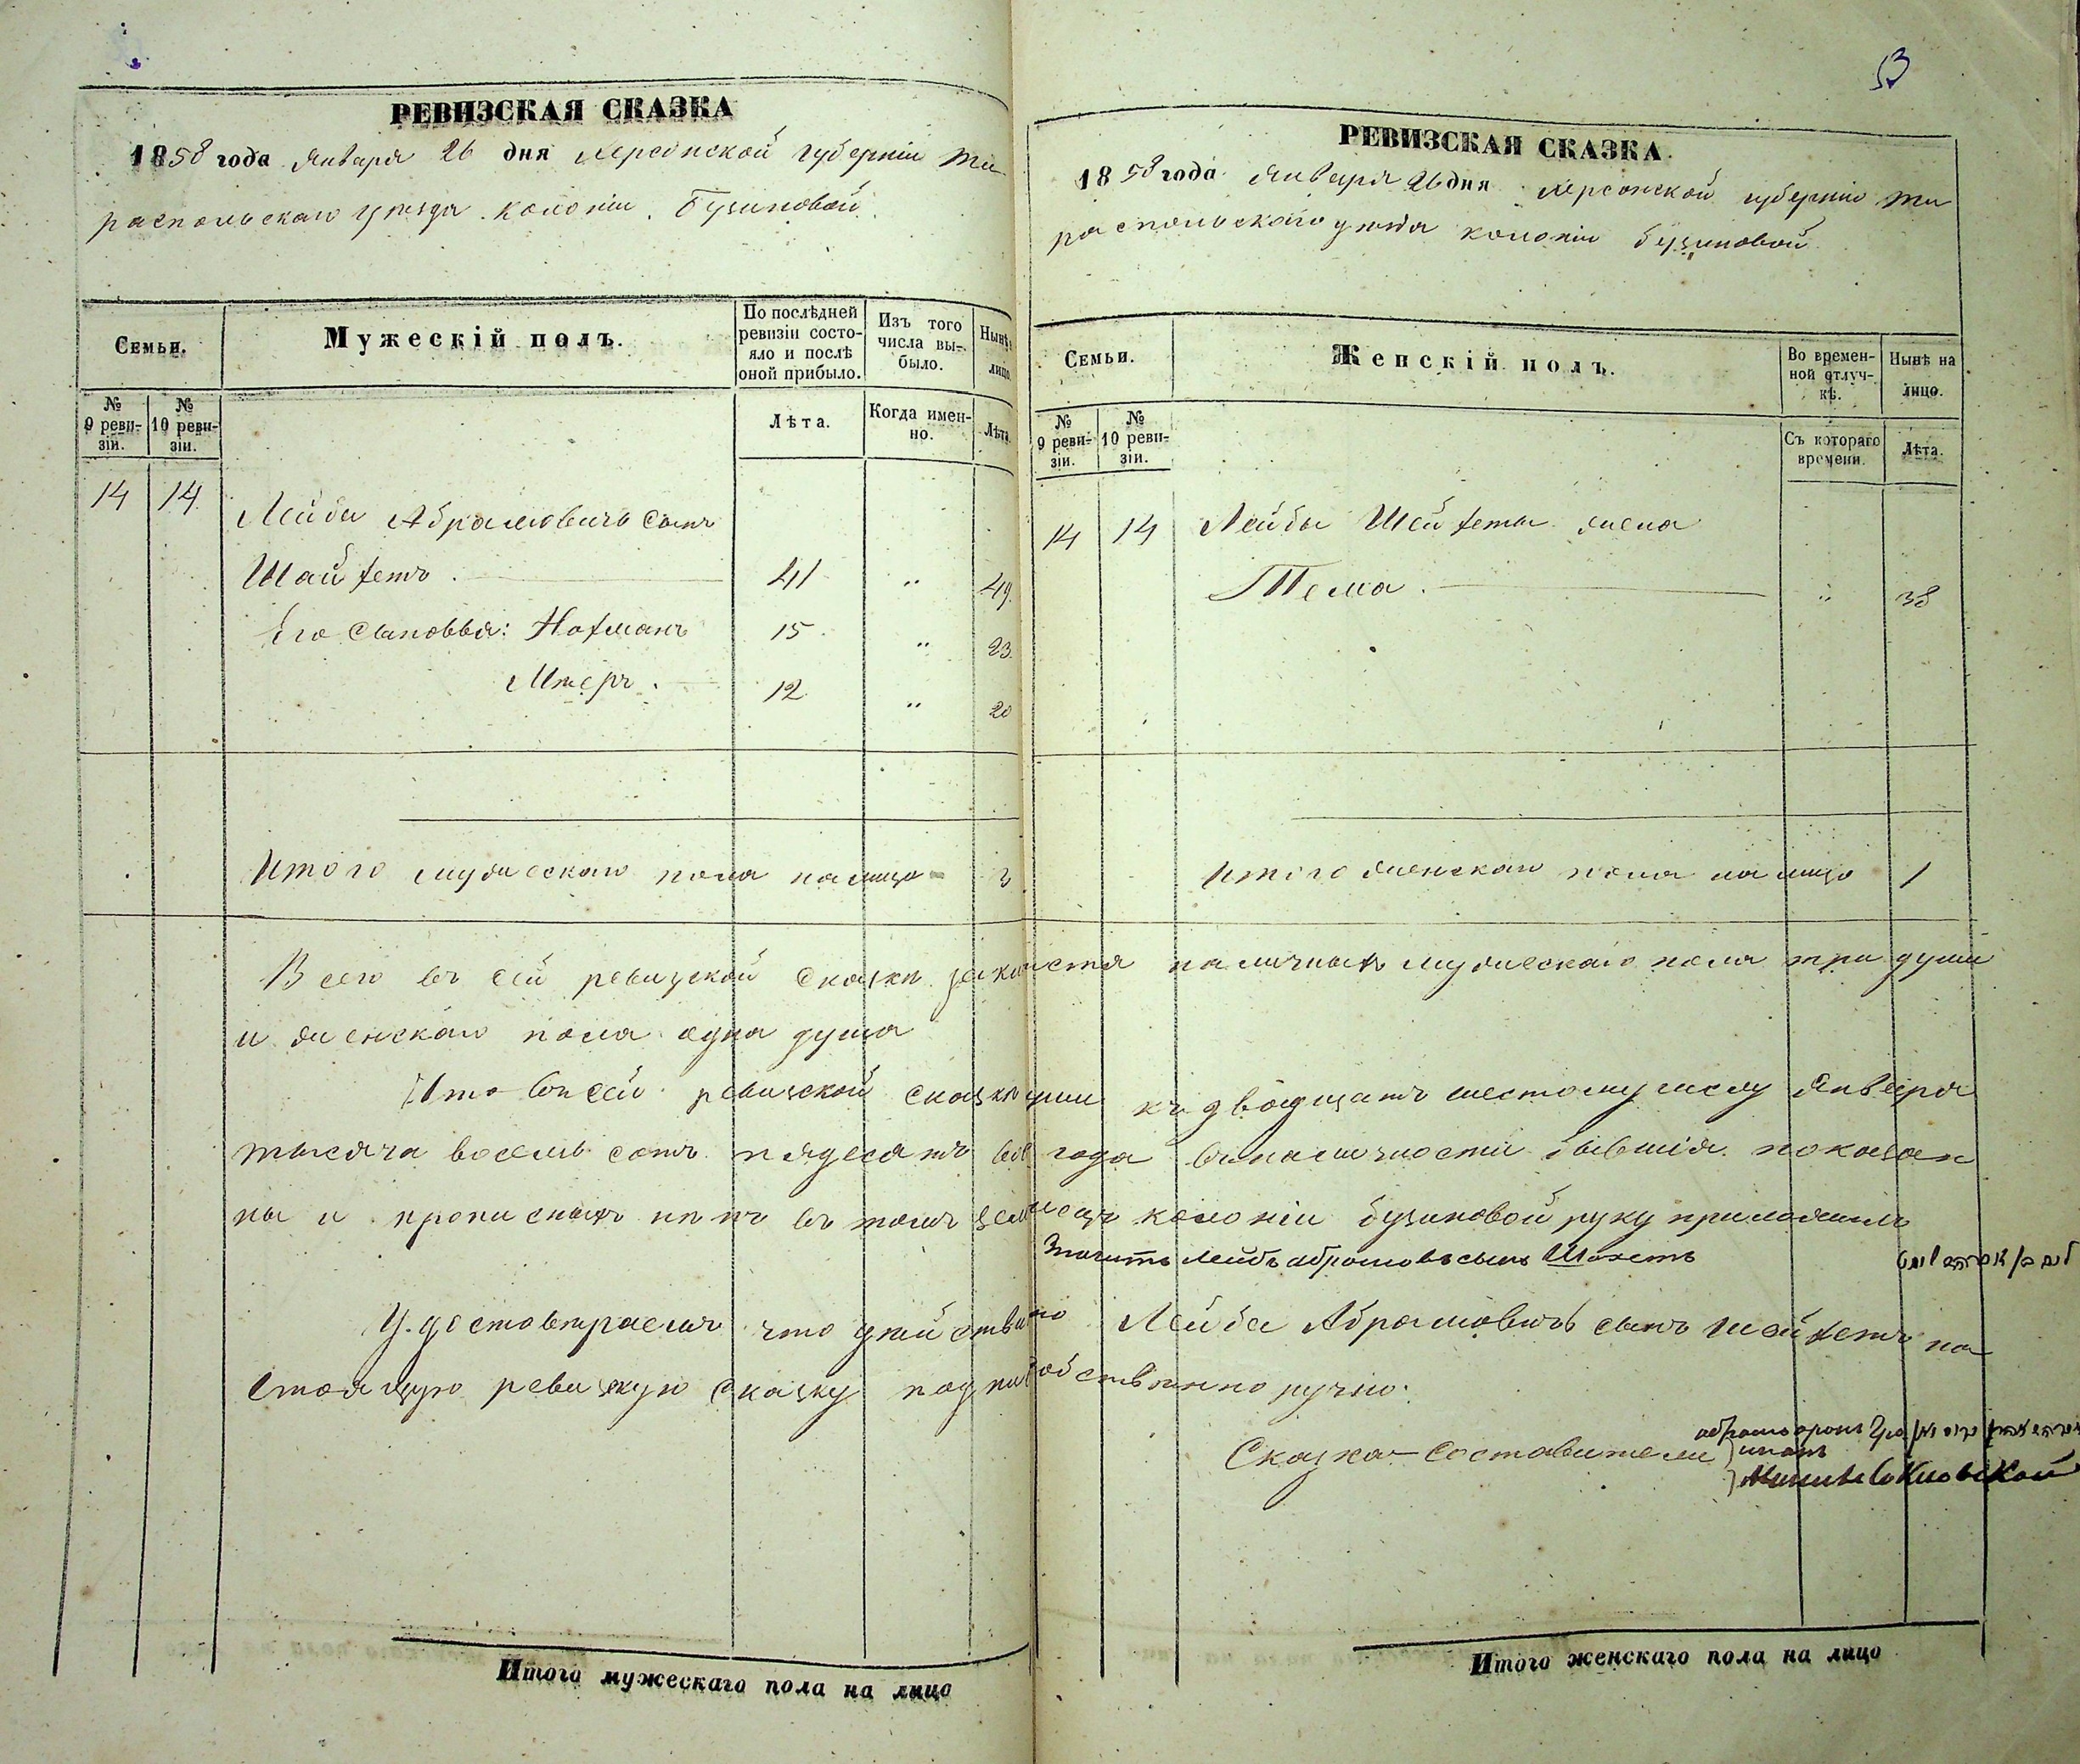 53
РЕВИЗСКАЯ СКАЗКА
1858 года Января 26 дня Херсонской губерніи Ти
распольскаго уѣзда колоніи Бузиновой
Семьи.
Мужескій полъ.
По послѣдней ревизіи состояло и послѣ оной прибыло.
Изъ того числа выбыло.
Нынѣ лицо
№ 9 ревизіи.
№ 10 ревизіи.
Лѣта.
Когда именно.
Лѣта
14 14 Лейба Абрамовичъ сынъ
Шайхетъ. 41 " 49
Его сыновья: Нахманъ 15 " 23
Итеръ. 12 " 20
Итого мужескаго пола налицо 3
РЕВИЗСКАЯ СКАЗКА.
1858 года Января 26 дня Херсонской губерніи Ти
распольскаго уѣзда колоніи Бузиновой
Семьи.
Женскій полъ.
Во временной отлучкѣ.
Нынѣ на лицо.
№ 9 ревизіи.
№ 10 ревизіи.
Съ котораго времени.
Лѣта.
14 14 Лейбы Шейхеты жена
Тема. " 38
Итого женскаго пола на лицо 1
Всего въ сей ревизской сказкѣ наличныхъ мужескаго пола три души
и женскаго пола одна душа
Что въ сей ревизской сказкѣ къ двадцать шестому числу Января
тысяча восемь сотъ пядесятъ года въ наличности бывшія показан
ны и прописныхъ нѣтъ въ томъ колоніи Бузиновой руку приложилъ
Значитъ Лейбъ Абрамовъ сынъ Шохетъ
Удостовѣраемъ что Лейба Абрамовичъ сынъ Шейхетъ на
стоящую ревизкую сказку собственно ручно.
Сказка-составители
Итого мужескаго пола на лицо
Итого женскаго пола на лицо